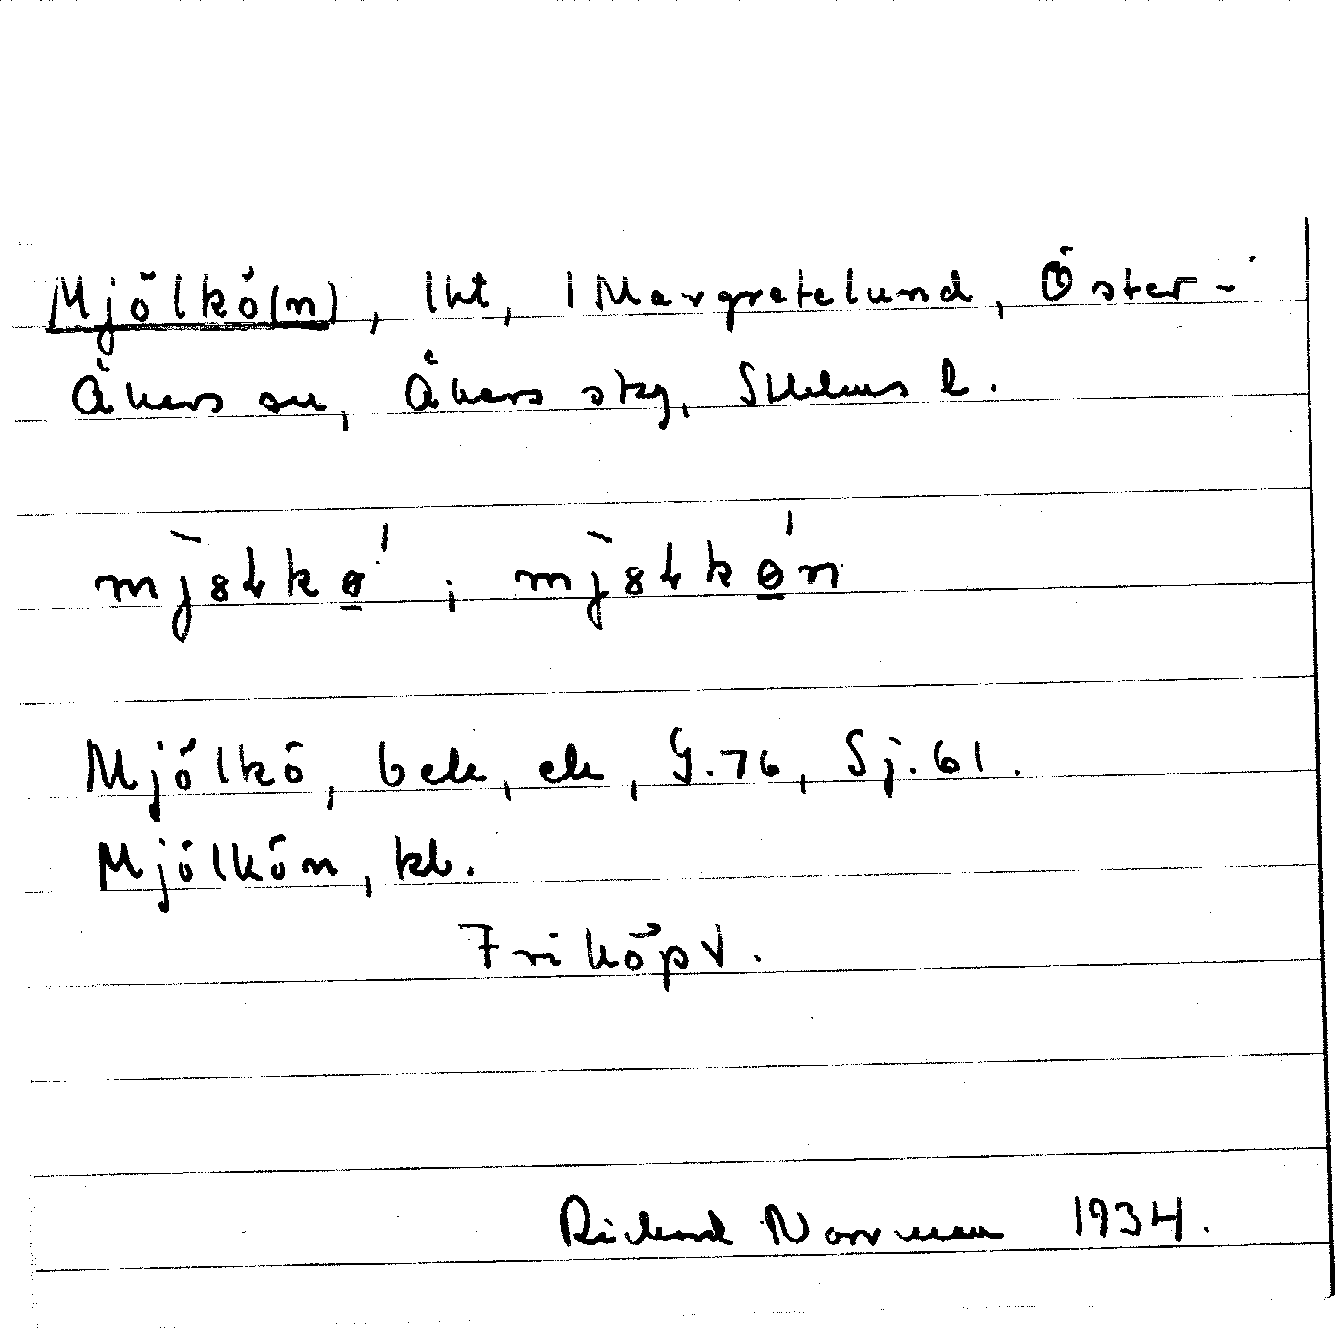 Mjölkö(n), lht, 1 Margretelund, Öster-
Åkers sn, Åkers skg, Sthlms l.
mjölkö; mjölkön
Mjölkö, bek, ek, G. 76, Sj. 61.
Mjölkön, kb.
Friköpt.
Rickard Norrman 1934.